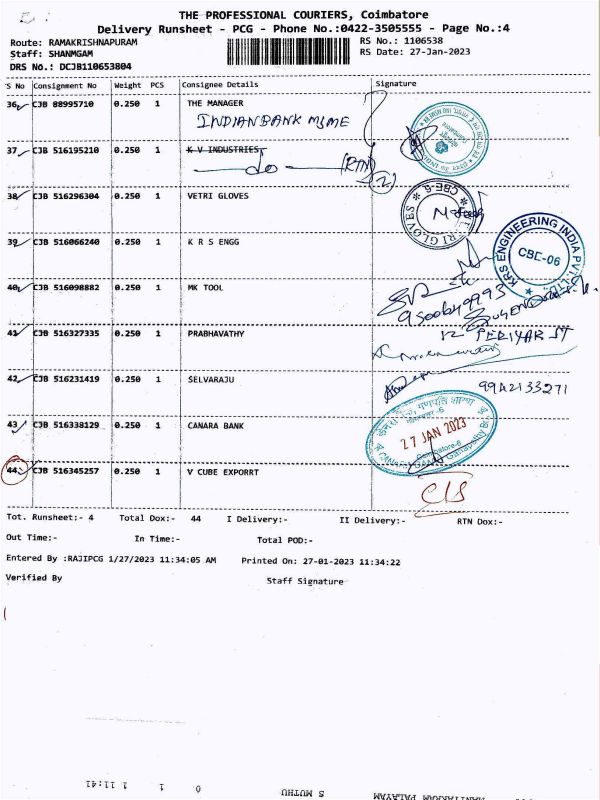 THE PROFESSIONAL COURIERS, Coimbatore
Delivery Runsheet - PCG - Phone No.:0422-3505555 - Page No.:4
Route: RAMAKRISHNAPURAM
Staff: SHANMGAM
DRS No.: DCJB110653804
RS No.: 1106538
RS Date: 27-Jan-2023
S No Consignment No Weight PCS Consignee Details Signature
36 CJB 88995710 0.250 1 THE MANAGER
INDIAN BANK MSME
37 CJB 516195210 0.250 1 K V INDUSTRIES
do
2
38 CJB 516296304 0.250 1 VETRI GLOVES
CBE-6
39 CJB 516066240 0.250 1 K R S ENGG
KRS ENGINEERING INDIA PVT. LTD.
CBE-06
40 CJB 516098882 0.250 1 MK TOOL
41 CJB 516327335 0.250 1 PRABHAVATHY
12 PERIYAR ST
42 CJB 516231419 0.250 1 SELVARAJU
9942133271
43 CJB 516338129 0.250 1 CANARA BANK
27 JAN 2023
Coimbatore-6
44 CJB 516345257 0.250 1 V CUBE EXPORRT
C/S
Tot. Runsheet:- 4 Total Dox:- 44 I Delivery:- II Delivery:- RTN Dox:-
Out Time:- In Time:- Total POD:-
Entered By :RAJIPCG 1/27/2023 11:34:05 AM Printed On: 27-01-2023 11:34:22
Verified By Staff Signature
S MUTHU